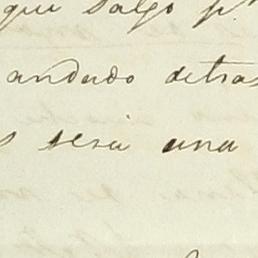 que salgo p
andado detras
sera una